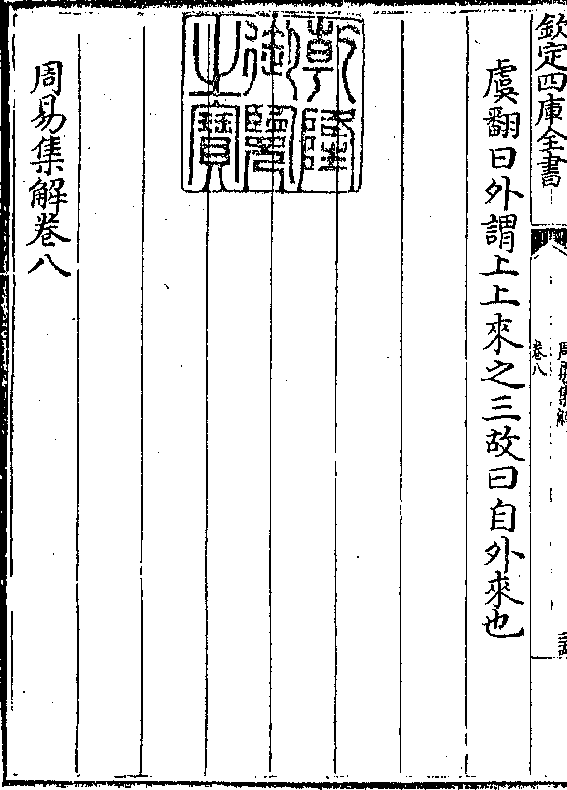 欽定四庫全書
周易集解
卷八
虞翻曰外謂上上來之三故曰自外來也
乾隆
御覽
之寶
周易集解卷八